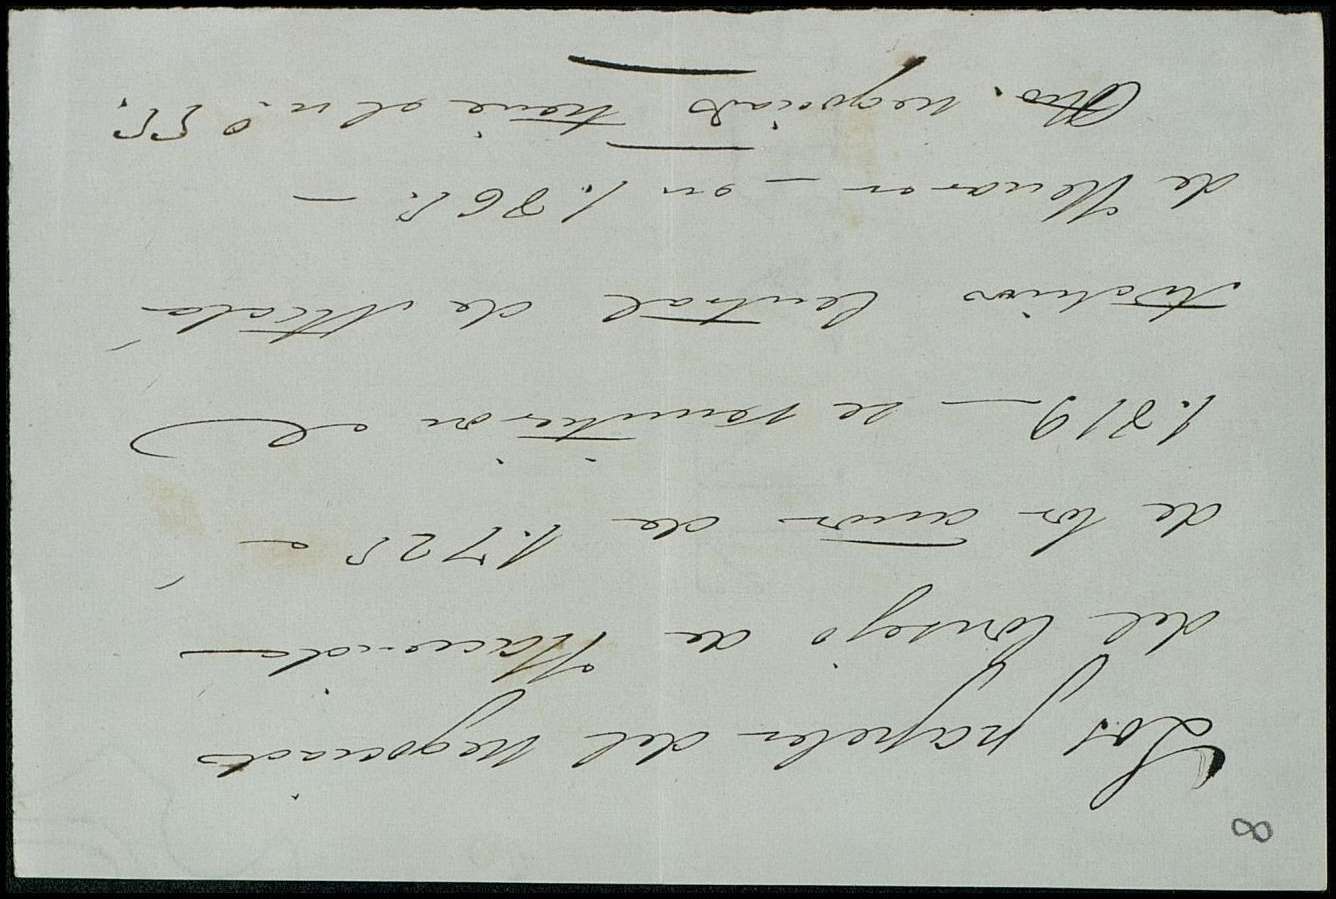 8
Los papeles del Negociado
del Consejo de Hacienda
de los años de 1.725 a
1.819 — se remitieron al
Archivo Central de Alcalá
de Henares — en 1.865. —
Otro. negociado tiene el n.º 55.